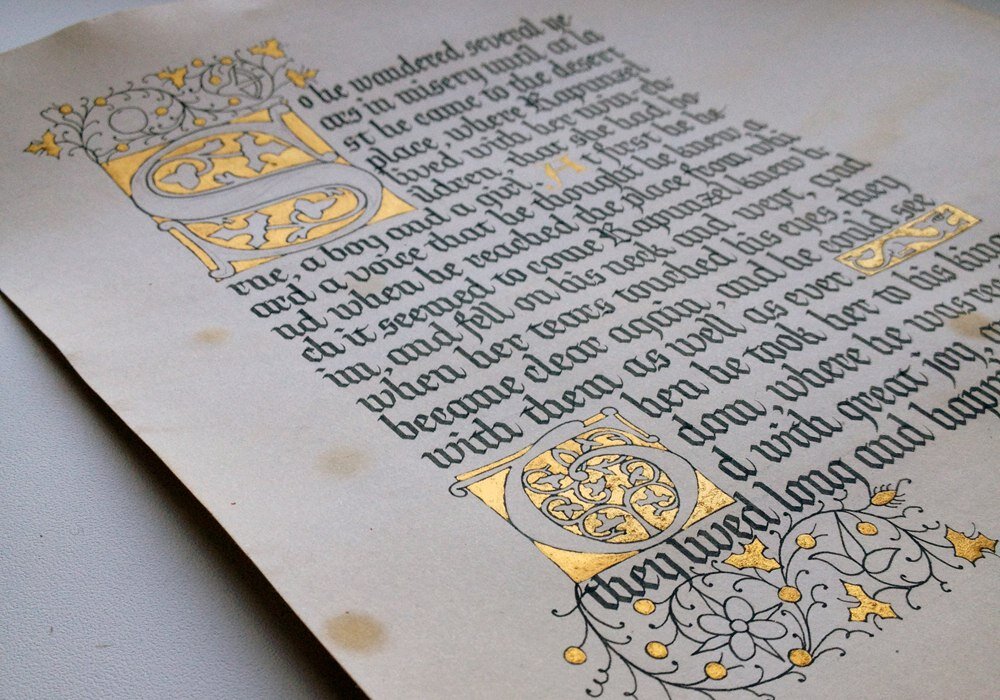 So he wandered several ye
ars in misery until at la
st he came to the desert
place, where Rapunzel
lived with her twin-ch
ildren, that she had bo-
rne, a boy and a girl. At first he he-
ard a voice that he thought he knew, a
nd when he reached the place from whi
ch it seemed to come Rapunzel knew h
im, and fell on his neck and wept, and
when her tears touched his eyes, they
became clear again, and he could see
with them as well as ever.
Then he took her to his king
dom, where he was re
d with great joy, a
they lived long and happi